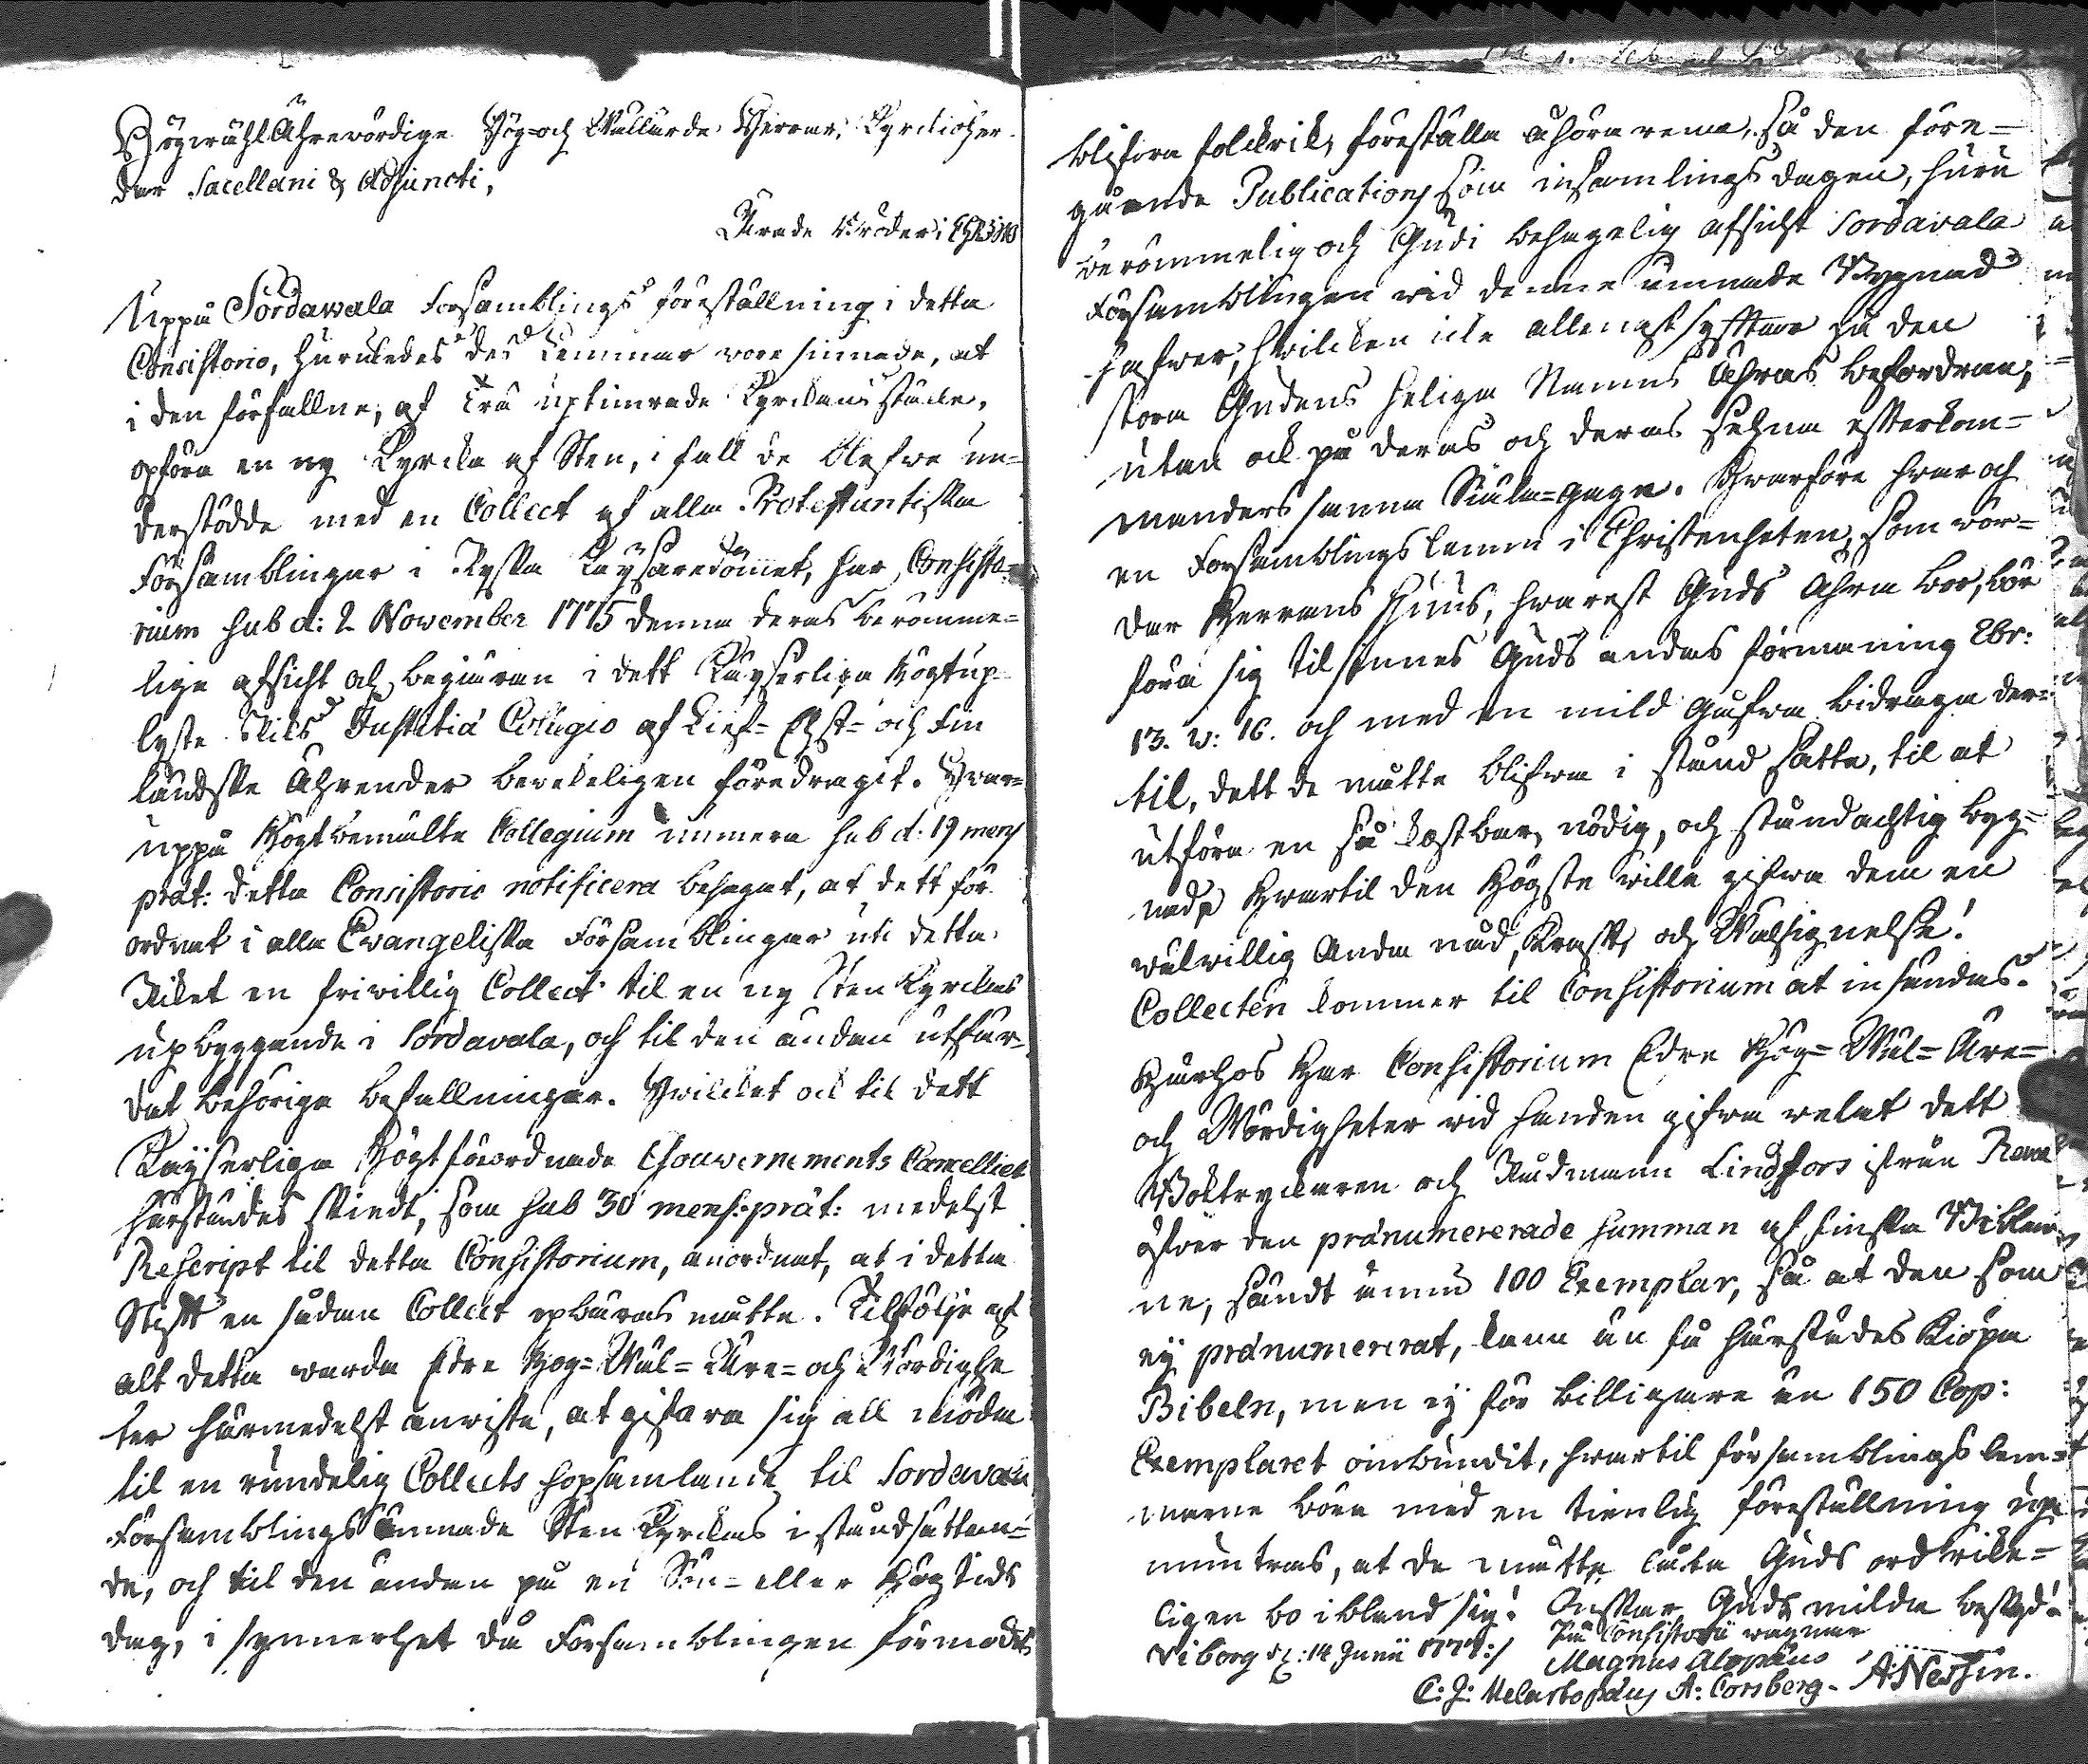 HögwählÄhrewördige Hög- och Wällärde Herrar, Kyrckioher-
dar Sacellani & Adjuncti,
Ährade Bröder i Christo
Uppå Sordawala Forsamblings föreställning i detta
Consistorio, huruledes des Lemmar wore sinnade, at
i den förfallne, af Trä uptimrade Kyrckans ställe,
opföra en ny Kyrcka af Sten, i fall de blefwe un-
derstödde med en Collect af alla Protestantiska
Församblingar i Ryska Kaÿsaredömet, har Consisto-
rium sub d: 2 November 1775 denna deras berömme-
lige afsicht och begiäran i dett Kaÿserliga Högtup-
lyste Riks Justitiä Collegio af Lief- Ehst- och Fin
ländska Ährender beveleligen föredragit. Hwar-
uppå Högtbemälte Collegium numera sub d: 19 mens
prät: detta Consistorio notificera behagat, at dett för-
ordnat i alla Evangeliska Församblingar uti detta
Riket en friwillig Collect til en ny Sten Kyrckas
upbyggande i Sordavala, och til den ändan utfär-
dat behörige befallningar. Hwilcket ock til dett
Kaÿserliga Högtförordnade Gouvernements Cancelliet
härstädes skiedt, som sub 30 mens: prät: medelst
Rescript til detta Consistorium, anordnat, at i detta
Stift en sådan Collect opbäras måtte. Tilfölje af
alt detta warda Edre Hög- Wäl- Äre- och Wördighe
ter härmedelst anviste, at gifwa sig all möda
til en ründelig Collects hopsamlande til Sordavala
Församblings ämnade Sten Kyrckas i ståndsättan-
de, och til den ändan på en Sön- eller Högtids
dag, i synnerhet då Församblingen förmodes
blifwa folckrik, föreställa åhörarena, så den före-
gående Publications som insamlings dagen, huru
berömmelig och Gudi behagelig afsicht Sordavala
Församblingen wid denne ämnade Byggnad
hafwer, hwilcken icke allenast syfftar på den
stora Gudens heliga Namns Ähras befordran,
utan ock på deras och deras sehna efterkom-
manders sanna Siäla-gagn. Hwarföre hwar och
en Forsamblings lemm i Christenheten, som wör-
dar Herrans Huus, hwarest Guds Ähra bor, bör
föra sig til sinnes Guds andas förmaning Ebr:
13. v: 16. och med en mild gåfwa bidraga der-
til, dett de måtte blifwa i stånd satte, til at
utföra en så kostbar, nödig, och ståndachtig byg-
nad, Hwartil den Högste wille gifwa dem en
wälwillig Anda nåd, Krafft, och Wälsignelse!
Collecten kommer til Consistorium at insändas.
Härhos har Consistorium Edre Hög- Wäl- Äre-
och Wördigheter wid handen gifwa welat dett
Boktryckaren och Rådmann Lindfors ifrån Reval
öfver den pränumererade summan af finska Biblar-
ne, sändt ännu 100 Exemplar, så at den som
eÿ pränumererat, kann än få härstädes Kiöpa
Bibeln, men eÿ för billigare än 150 Cop:
Exemplaret oinbundit, hwartil församblings lem-
marne böra med en tienlig föreställning upp
muntras, at de måtte låta Guds ord rike-
ligen bo ibland sig! Önskar Guds milda beskydd
Viborg d: 14 Junii 1777:/ På Consistorii wägnar
Magnus Alopäus
C: J: Melartopäus A: Corsberg. A Nessin.